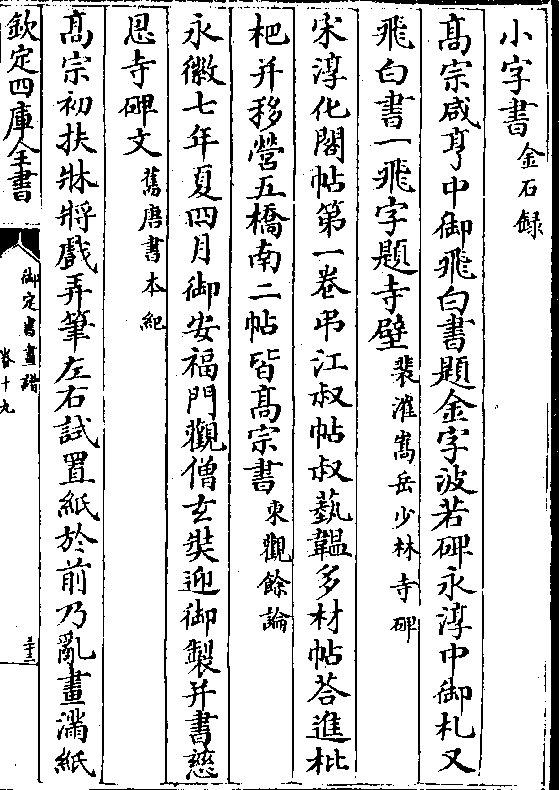 小字書金石録
髙宗咸亨中御飛白書題金字波若碑永淳中御札又
飛白書一飛字題寺壁裴漼嵩岳少林寺碑
宋淳化閣帖第一卷弔江叔帖叔藝韞多材帖荅進枇
杷并移營五橋南二帖皆髙宗書東觀餘論
永徽七年夏四月御安福門觀僧玄奘迎御製并書慈
恩寺碑文舊唐書本紀
髙宗初扶牀將戲弄筆左右試置紙於前乃亂畫滿紙
欽定四庫全書
御定書畫譜
卷十九